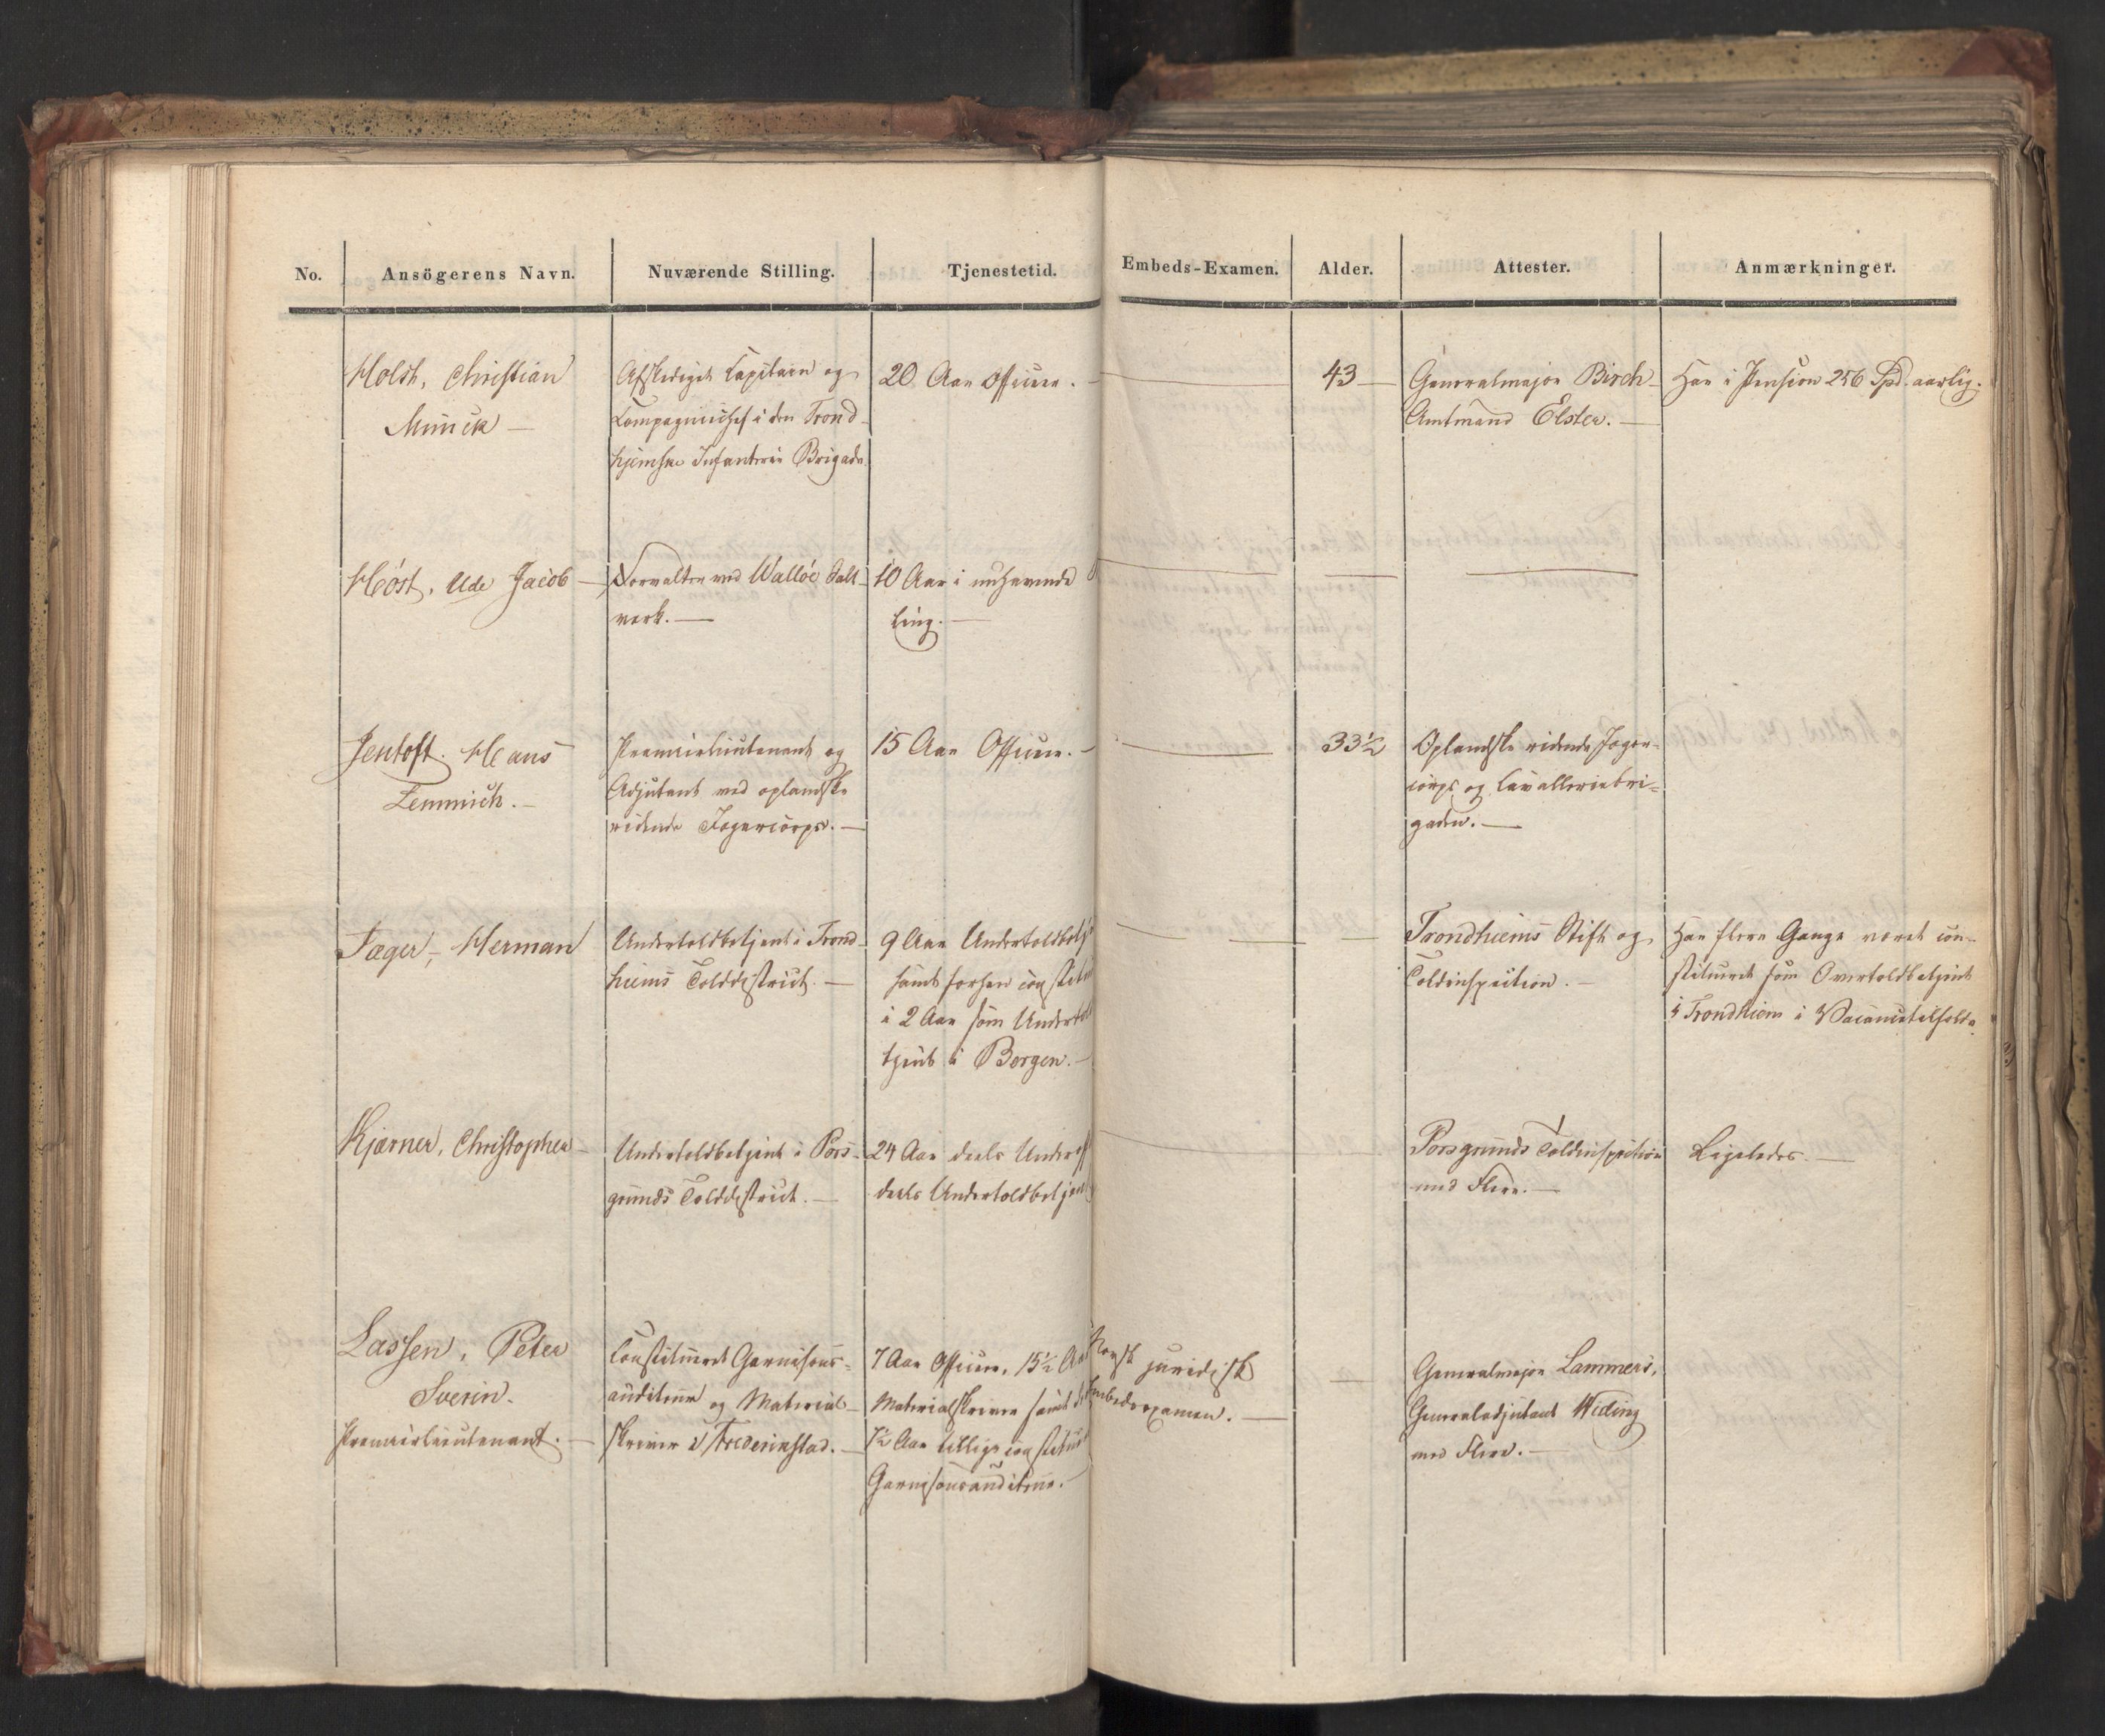 No. Ansögerens Navn. Nuværende Stilling. Tjenestetid. Embeds-Examen. Alder. Attester. Anmærkninger.
Holst, Christian
Munck —
Afskediget Capitain og
Compagniechef i den Trond-
hjemske Infanterie Brigade
20 Aar Officeer. —
43 —
Generalmajor Birch
Amtmand Elster. —
Har i Pension 256 Spd. aarlig.
Höst, Ude Jacob —
Forvalter ved Walløe Salt-
værk. —
10 Aar i nuhavende
—
Jentoft. Hans
Lemmich. —
Premierlieutenant og
Adjutant ved oplandske
ridende Jægercorps. —
15 Aar Officeer. —
33½
Oplandske ridende Jæger-
corps og Cavalleriebri-
gaden. —
Jæger, Herman
Undertoldbetjent i Trond-
hiems Tolddistrict. —
9 Aar Undertoldbetj
samt forhen constitu
i 2 Aar som Undertol
tjent i Bergen. —
Trondhiems Stift og
Toldinspection. —
Har flere Gange været con-
stitueret som Overtoldbetjent
i Trondhiem i Vacancetilfælde
Kjerner, Christopher —
Undertoldbetjent i Pors-
grunds Tolddistrict. —
24 Aar deels Underoff
deels Undertoldbetjent
Porsgrunds Toldinspection
med Flere. —
Ligeledes. —
Lassen, Peter
Sverin.
Premierlieutenant. —
Constitueret Garnisons-
auditeur og Material-
skriver i Fredrikstad. —
7 Aar Officeer, 15½ Aar
Materialskriver samt
7½ Aar tillige constitu
Garnisonsauditeur. —
Norsk juridisk
Embedsexamen. —
Generalmajor Lammers,
Generaladjutant Hieding
med Flere. —